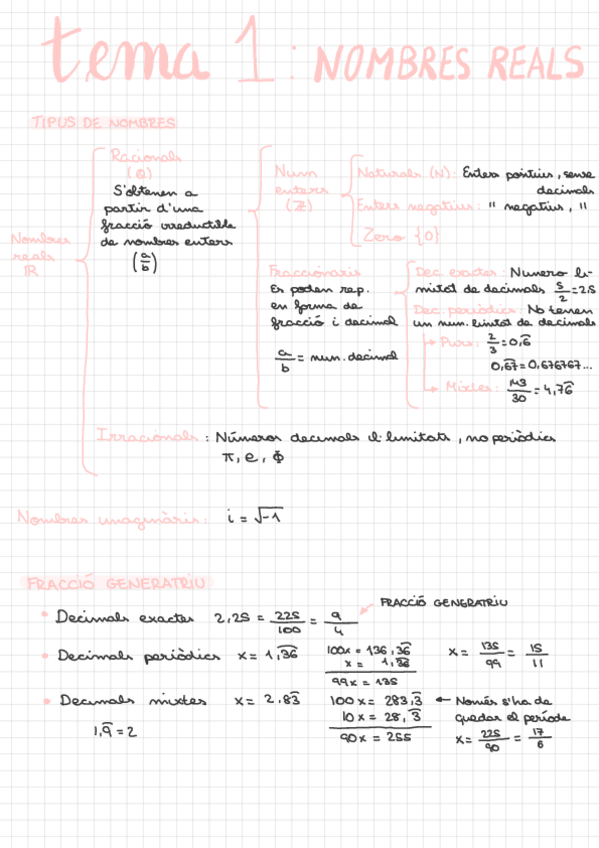 tema 1: NOMBRES REALS
TIPUS DE NOMBRES
Nombres
reals
ℝ
Racionals
(Q)
S'obtenen a
partir d'una
fracció irreductible
de nombres enters
(a/b)
Num
enters
(Z)
Naturals (N): Enters positius, sense
decimals
Enters negatius: " negatius, "
Zero {0}
Fraccionaris
Es poden rep.
en forma de
fracció i decimal
a/b = num. decimal
Dec. exactes: Numero li-
mitat de decimals 5/2=25
Dec. periòdics: No tenen
un num. limitat de decimals
→ Purs: 2/3 = 0,6̂
0,67̂ = 0,676767...
→ Mixtes: 143/30 = 4,76̂
Irracionals: Números decimals il·limitats, no periòdics
π, e, Φ
Nombres imaginaris: i = √-1
FRACCIÓ GENERATRIU
• Decimals exactes 2,25 = 225/100 = 9/4
FRACCIÓ GENERATRIU
• Decimals periòdics x = 1,36̂
100x = 136,36̂
x = 1,36̂
99x = 135
x = 135/99 = 15/11
• Decimals mixtes x = 2.83̂
1,9̂ = 2
100x = 283,3̂
10x = 28,3̂
90x = 255
← Només s'ha de
quedar el període
x = 225/90 = 17/6